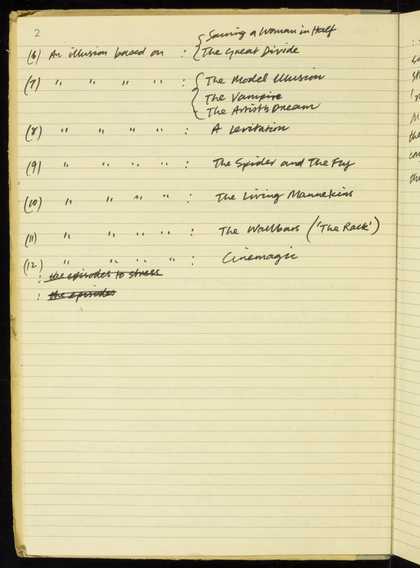 2
Sawing a Woman in Half
(6) An illusion based on : The Great Divide
(7) " " " " : The Model Illusion
The Vampire
The Artist's Dream
(8) " " " " : A Levitation
(9) " " " " : The Spider and The Fly
(10) " " " " : The Living Mannekins
(11) " " " " : The Wallbars ('The Rack')
(12) " " " " : Cinemagic
: the episodes to stress
: the episodes